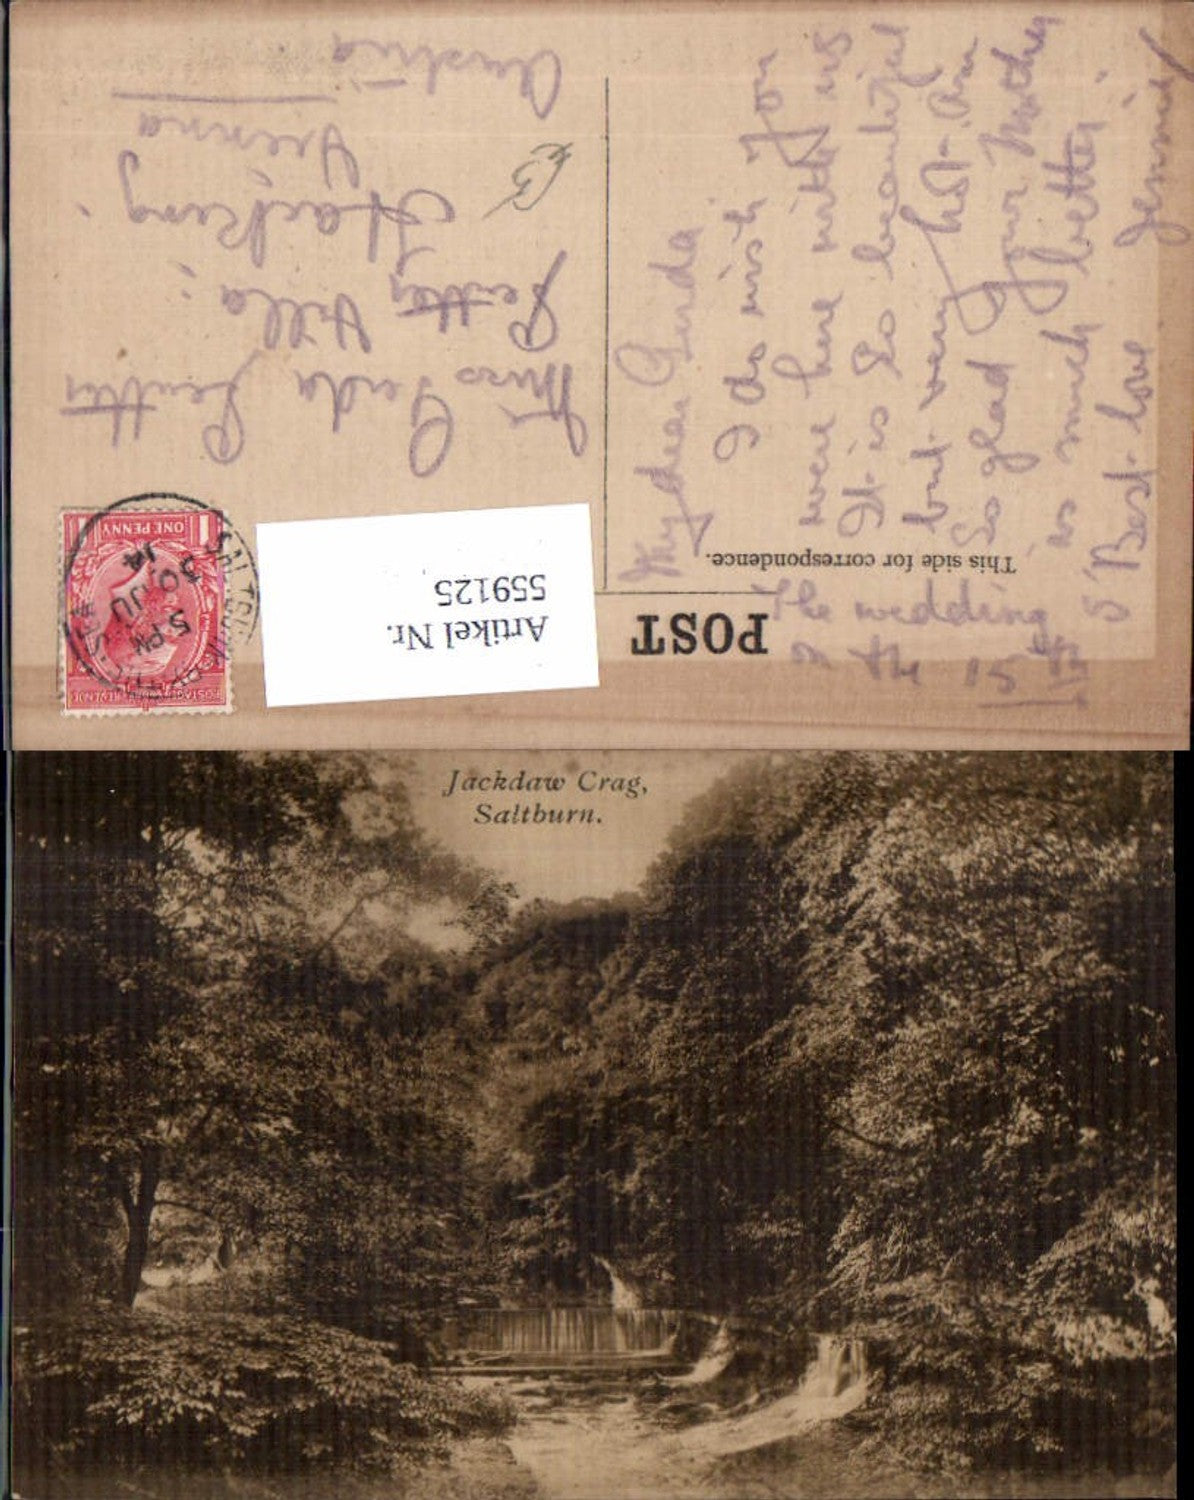 POST
This side for correspondence.
My dear Gerda
I do wish you
were here with us
It is so beautiful
but very hot. Am
so glad your Mother
is much better.
Best love
Jennie
The wedding is
the 15th
Miss Gerda
Villa.
Hacking.
Vienna
Austria
Artikel Nr.
559125
ONE PENNY
5 PM
30 JU
14
Jackdaw Crag,
Saltburn.